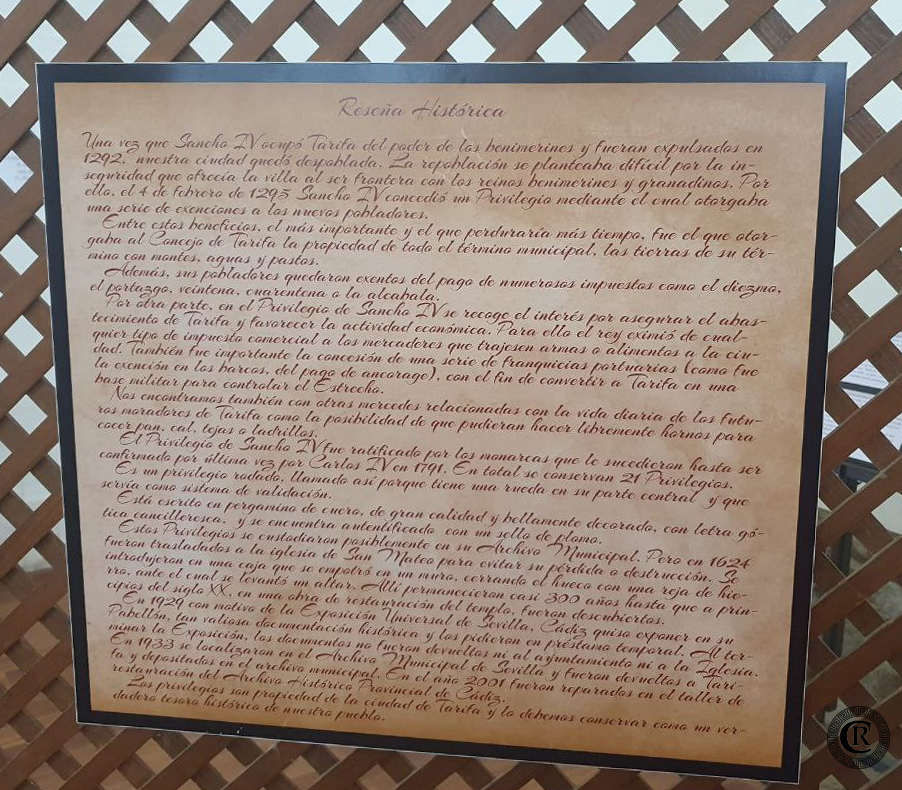 Reseña Histórica
Una vez que Sancho IV ocupó Tarifa del poder de los benimerines y fueran expulsados en
1292, nuestra ciudad quedó despoblada. La repoblación se planteaba difícil por la in-
seguridad que ofrecía la villa al ser frontera con los reinos benimerines y granadinos. Por
ello, el 4 de febrero de 1295 Sancho IV concedió un Privilegio mediante el cual otorgaba
una serie de exenciones a los nuevos pobladores.
Entre estos beneficios, el más importante y el que perduraría más tiempo, fue el que otor-
gaba al Concejo de Tarifa la propiedad de todo el término municipal, las tierras de su tér-
mino con montes, aguas y pastos.
Además, sus pobladores quedaron exentos del pago de numerosos impuestos como el diezmo,
el portazgo, veintena, cuarentena o la alcabala.
Por otra parte, en el Privilegio de Sancho IV se recoge el interés por asegurar el abas-
tecimiento de Tarifa y favorecer la actividad económica. Para ello el rey eximió de cual-
quier tipo de impuesto comercial a los mercaderes que trajesen armas o alimentos a la ciu-
dad. También fue importante la concesión de una serie de franquicias portuarias (como fue
la exención en los barcos, del pago de ancorage), con el fin de convertir a Tarifa en una
base militar para controlar el Estrecho.
Nos encontramos también con otras mercedes relacionadas con la vida diaria de los futu-
ros moradores de Tarifa como la posibilidad de que pudieran hacer libremente hornos para
cocer pan, cal, tejas o ladrillos.
El Privilegio de Sancho IV fue ratificado por los monarcas que le sucedieron hasta ser
confirmado por última vez por Carlos IV en 1791. En total se conservan 21 Privilegios.
Es un privilegio rodado, llamado así porque tiene una rueda en su parte central y que
servía como sistema de validación.
Está escrito en pergamino de cuero, de gran calidad y bellamente decorado, con letra gó-
tica cancilleresca, y se encuentra autentificado con un sello de plomo.
Estos Privilegios se custodiaron posiblemente en su Archivo Municipal. Pero en 1624
fueron trasladados a la iglesia de San Mateo para evitar su pérdida o destrucción. Se
introdujeron en una caja que se empotró en un muro, cerrando el hueco con una reja de hie-
rro, ante el cual se levantó un altar. Allí permanecieron casi 300 años hasta que a prin-
cipios del siglo XX, en una obra de restauración del templo, fueron descubiertos.
En 1929 con motivo de la Exposición Universal de Sevilla, Cádiz quiso exponer en su
Pabellón, tan valiosa documentación histórica y los pidieron en préstamo temporal. Al ter-
minar la Exposición, los documentos no fueron devueltos ni al ayuntamiento ni a la Iglesia.
En 1933 se localizaron en el Archivo Municipal de Sevilla y fueron devueltos a Tari-
fa y depositados en el archivo municipal. En el año 2001 fueron reparados en el taller de
restauración del Archivo Histórico Provincial de Cádiz.
Los privilegios son propiedad de la ciudad de Tarifa y lo debemos conservar como un ver-
dadero tesoro histórico de nuestro pueblo.